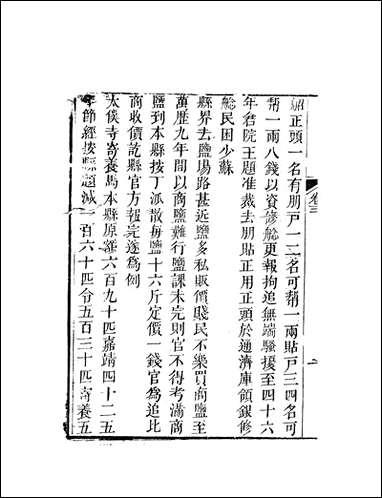 卷三
船正頭一名有朋戸一二名可幫一兩貼戸三四名可
幫一兩八錢以資修艌更報拘追無端騷擾至四十六
年倉院王題准裁去朋貼正用正頭於通濟庫領銀修
艌民困少蘇
縣界去鹽場路甚近鹽多私販價賤民不樂買商鹽至
萬歷九年間以商鹽難行鹽課未完則官不得考滿商
鹽到本縣按丁派散每鹽十六斤定價一錢官為追比
商收價訖縣官方報完遂為例
太僕寺寄養馬本縣原額六百九十匹嘉靖四十二五
年節經按縣題減一百六十匹今五百三十匹寄養五